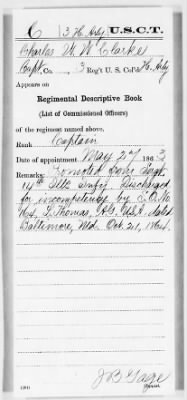 C 3 H. Arty. U.S.C.T.
Charles W. W. Clarke
Capt. Co. 3 Reg't U. S. Col'd H. Arty
Appears on
Regimental Descriptive Book
(List of Commissioned Officers)
of the regiment named above.
Rank Captain
Date of appointment May 27 186 3
Remarks: Promoted from Sergt.
14th Ills Infy. Discharged
for incompetency by S.O. No.
L. Thomas, A.G. U.S.A. dated
Baltimore, Md. Oct. 21, 1864.
J B Gage